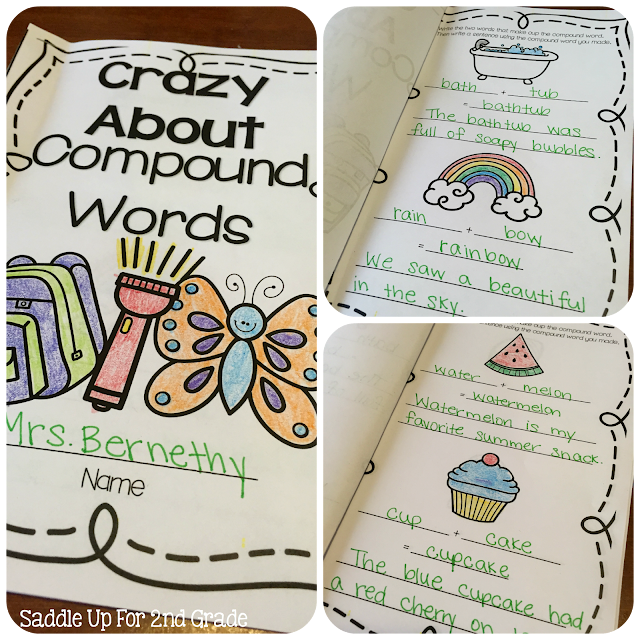 Crazy
About
Compound
Words
Mrs. Bernethy
Name
Saddle Up For 2nd Grade
Write the two words that make oup the compound word.
Then write a sentence using the compound word you made.
bath + tub
= bathtub
The bathtub was
full of soapy bubbles.
rain + bow
= rainbow
We saw a beautiful
in the sky.
make oup the compound word.
sentence using the compound word you made.
water + melon
= watermelon
Watermelon is my
favorite summer snack.
cup + cake
= cupcake
The blue cupcake had
a red cherry on